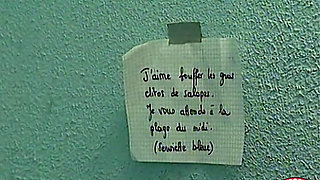 J'aime bouffer les gros
clitos de salopes.
Je vous attends à la
plage du midi.
(serviette bleue)